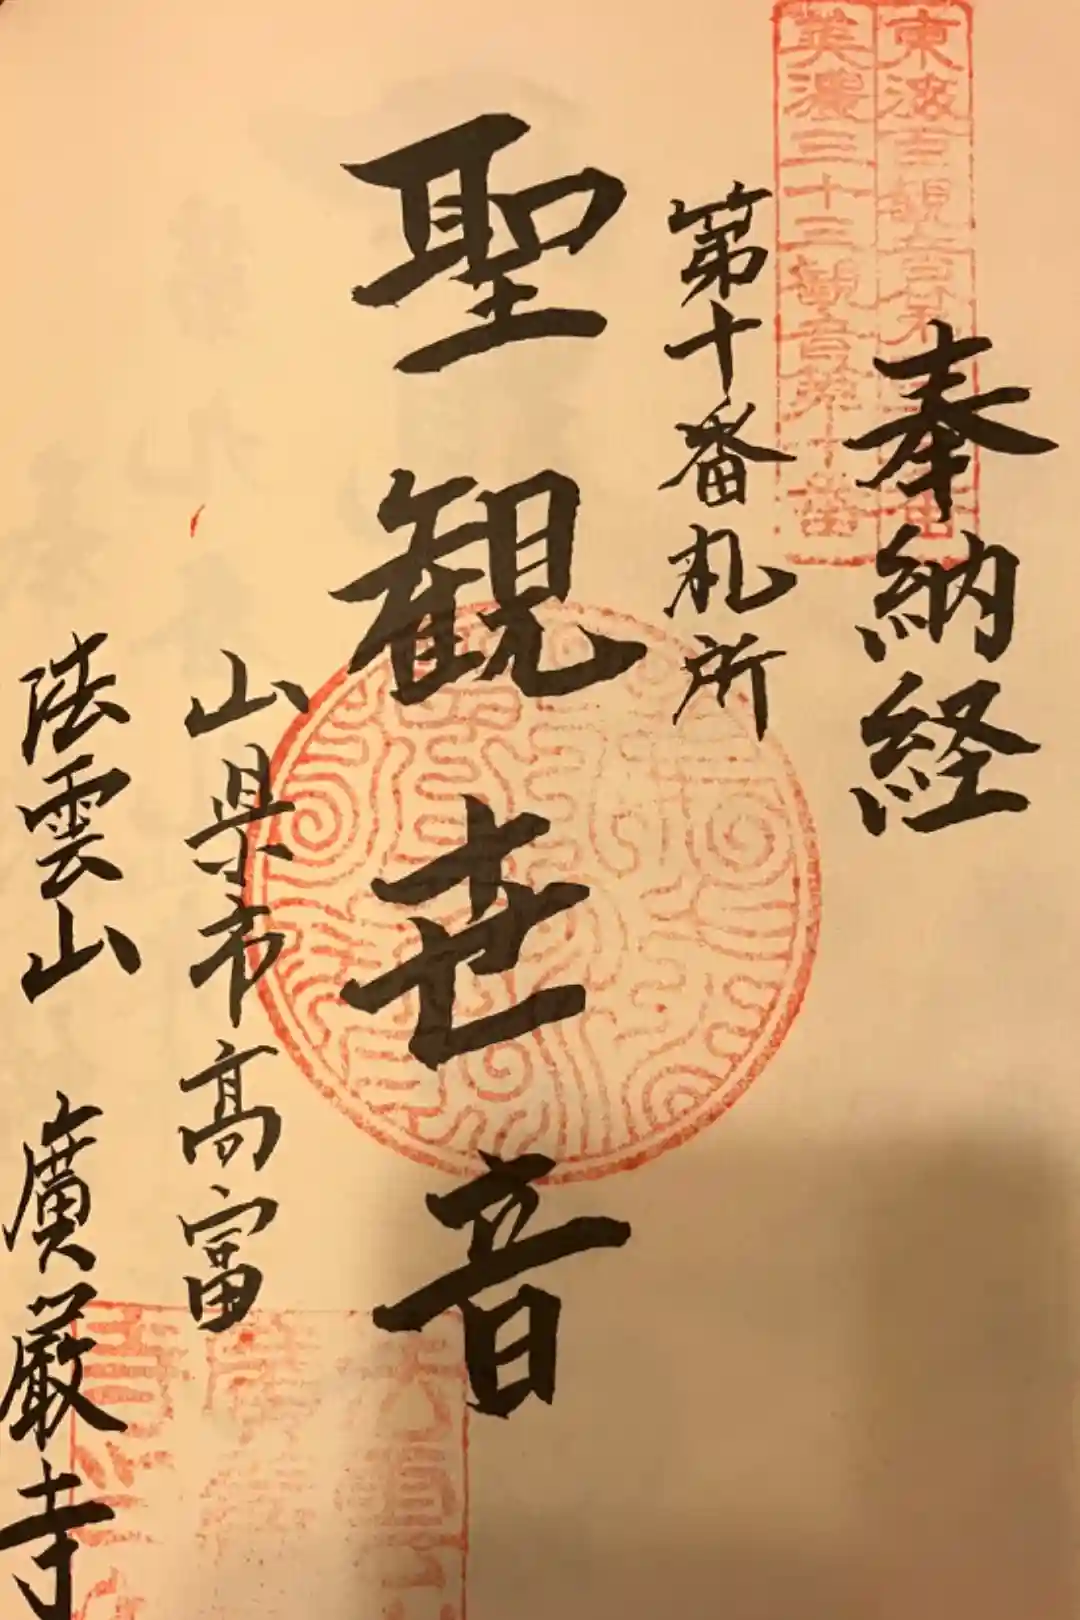 東海百観音第
美濃三十三観音第十番
奉納経
第十番札所
聖観世音
山県市高富
陸雲山 廣厳寺